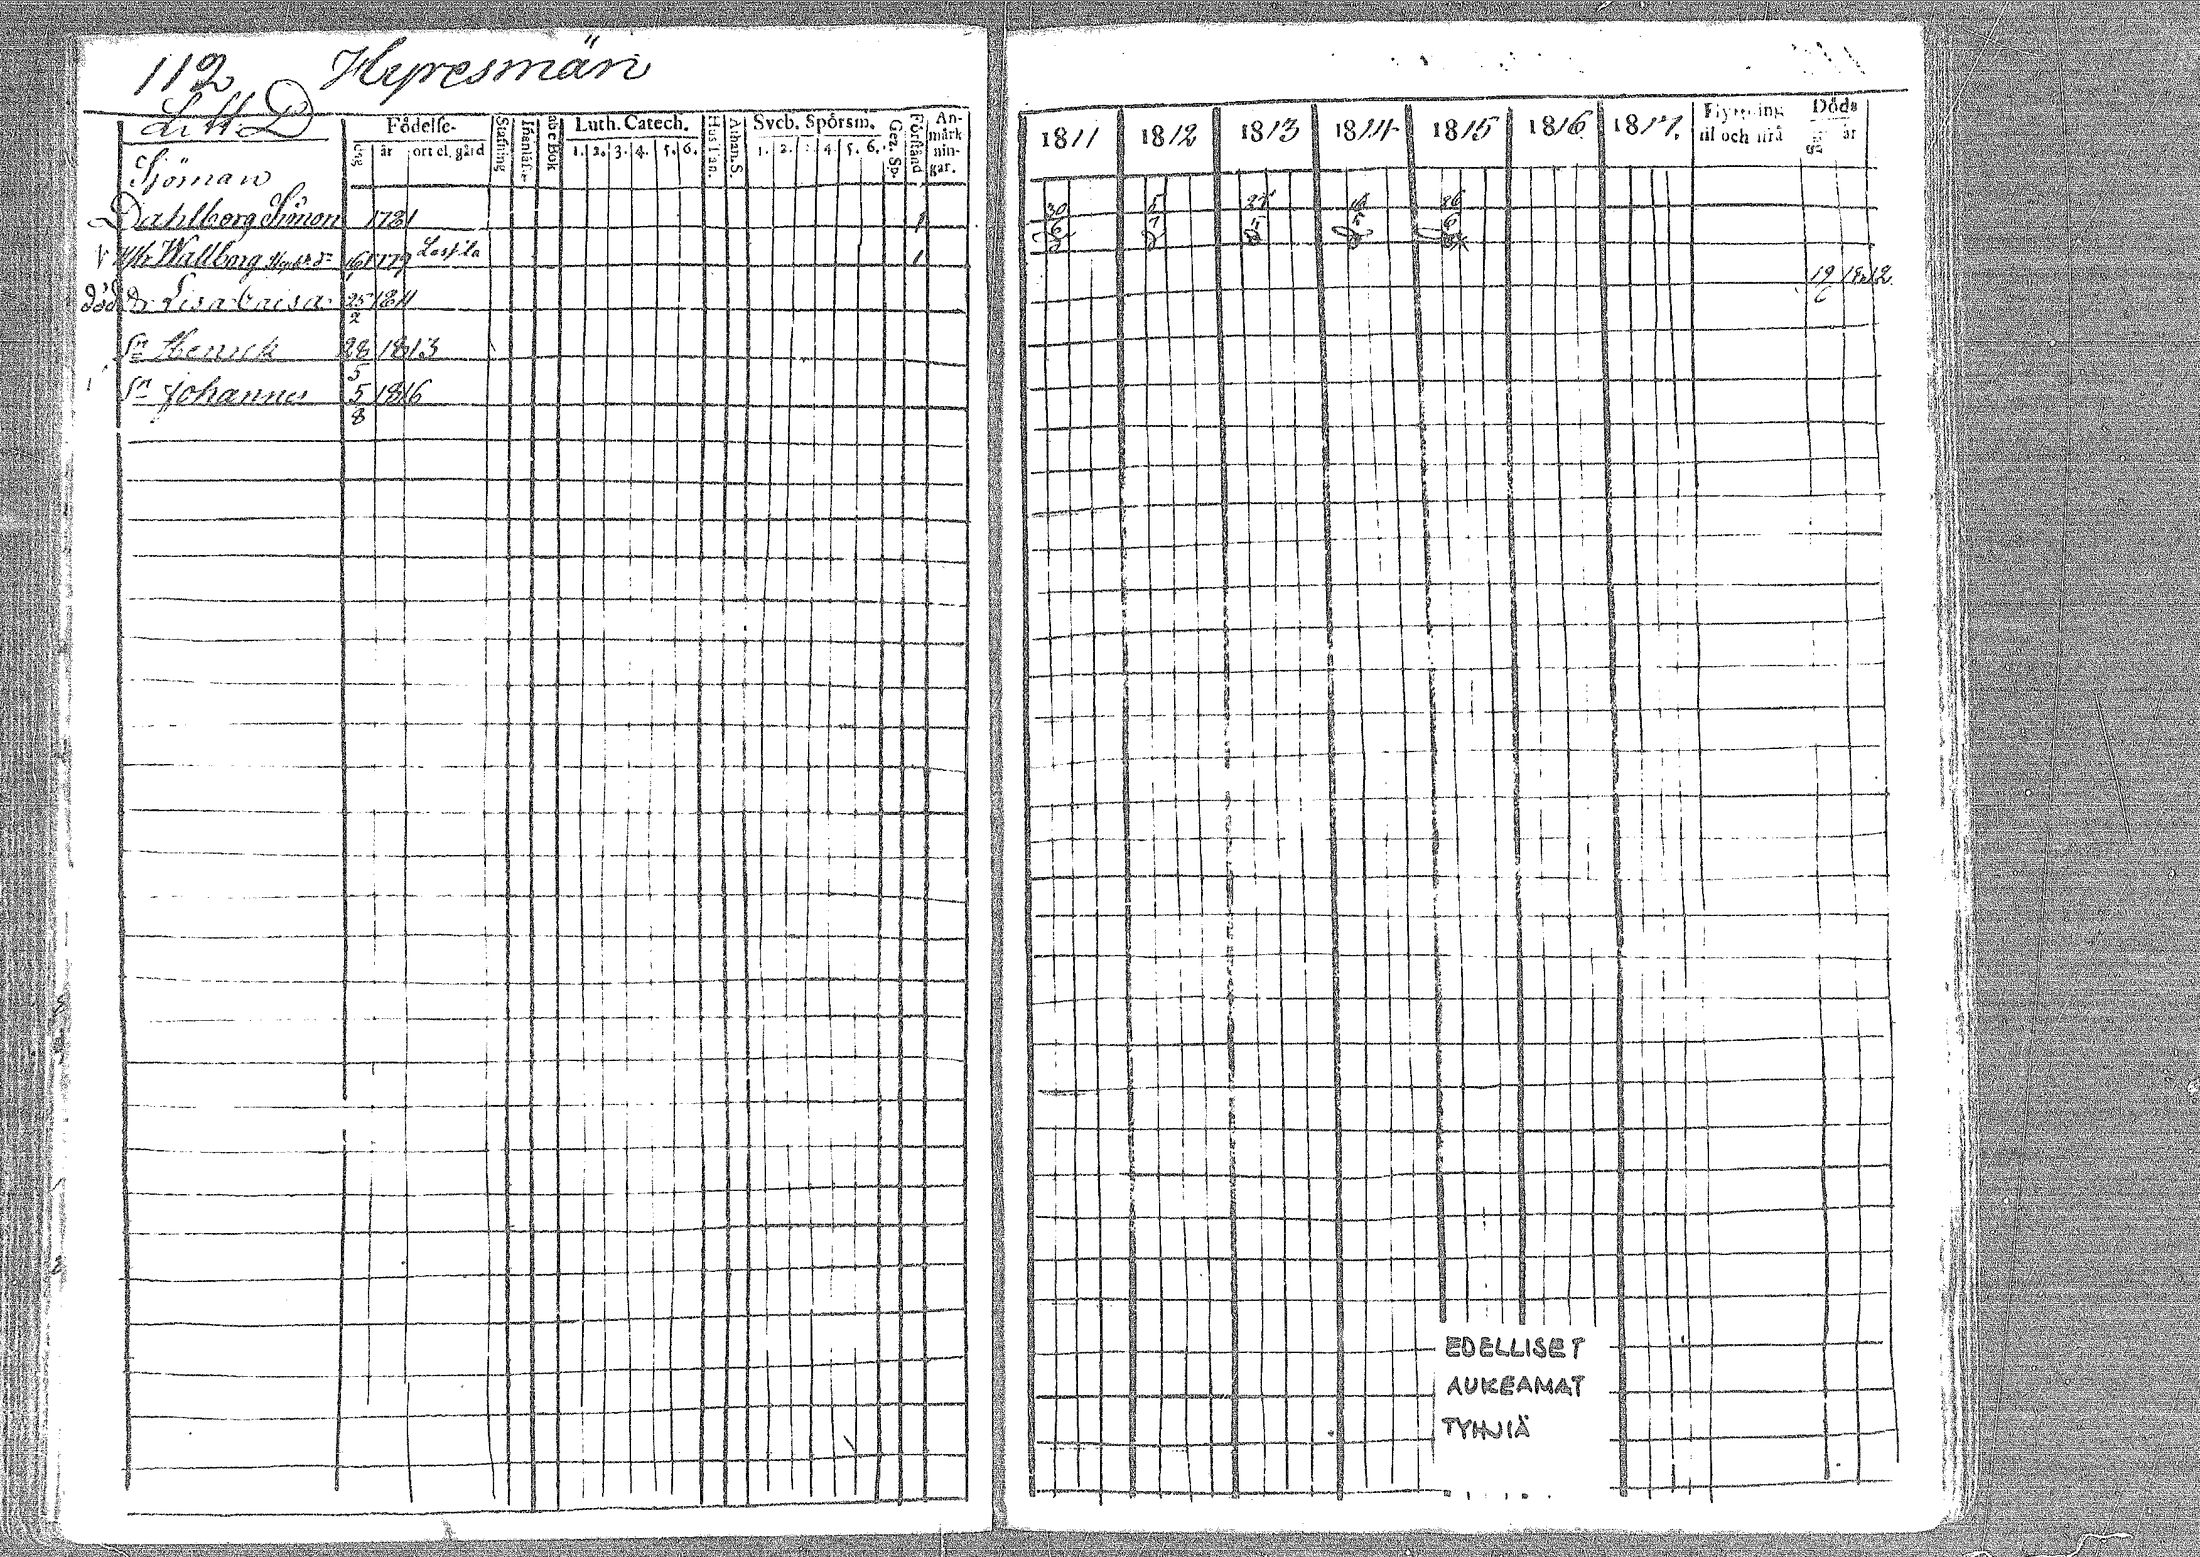 112 Hyresmän
Litt D
Födelse-
dag år ort el. gård
Stafning
Innanläsn.
abc Bok
Luth. Catech.
1. 2. 3. 4. 5. 6.
Hustafl.
Athan. S.
Sveb. Spörsm.
1. 2. 3. 4. 5. 6.
Gez. Sp.
Förstånd
An-
märk
nin-
gar.
Sjöman
Dahlberg Simon 1781 1
V H. Wallborg 1779 1
död Dr Lisa Caisa 25/2 1811
Sn Henrick 28/5 1813
Sn Johannes 5/8 1816
1811 1812 1813 1814 1815 1816 1817.
Flyttning
til och ifrå
Döds
dag år
30/6 5/7 5 5 26/6
19/6 1812
EDELLISET
AUKEAMAT
TYHJIÄ